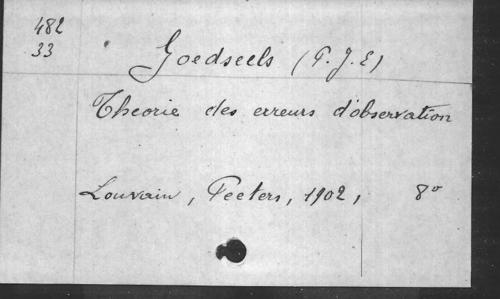 482
33
Goedseels (P. J. E)
Theorie des erreurs d'observation
Louvain, Peeters, 1902, 8º